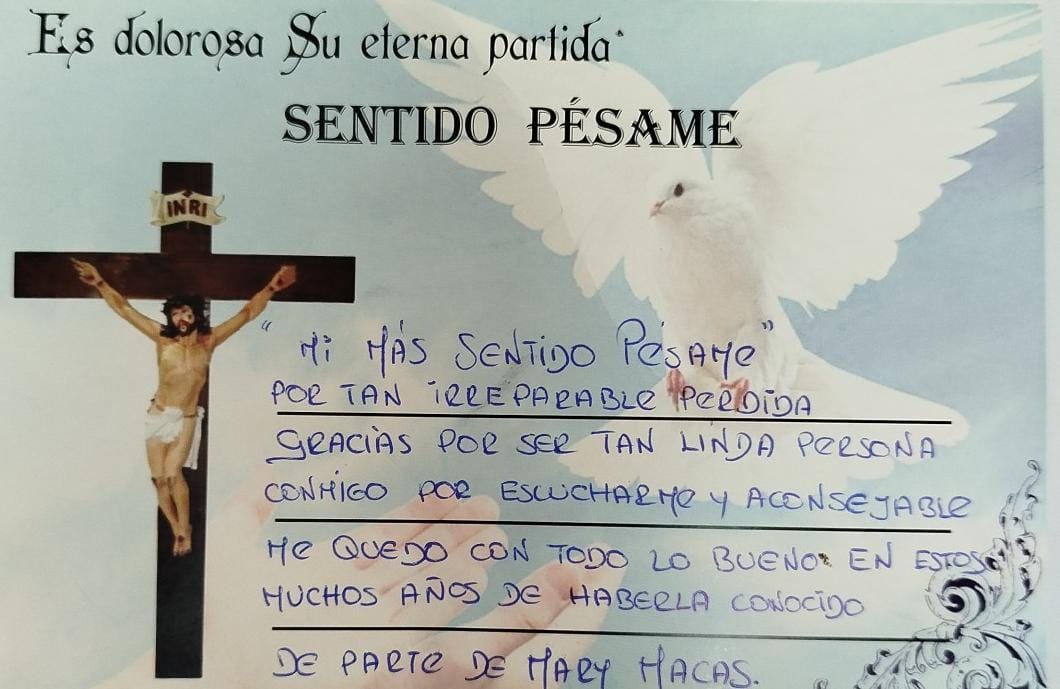 Es dolorosa Su eterna partida
SENTIDO PÉSAME
INRI
"Mi MÁS SENTIDO PésAMe"
POR TAN iRREPARABLe PeRDiDA
GRACiAS POR SER TAN LiNDA PeRSONA
CONMiGO POR ESCUCHARMe y ACONSEJABLe
Me QUEDO CON TODO LO BUENO EN ESTOS
MUCHOS AÑOS DE HABERLA CONOCiDO
DE PARTe DE MARY MACAS.